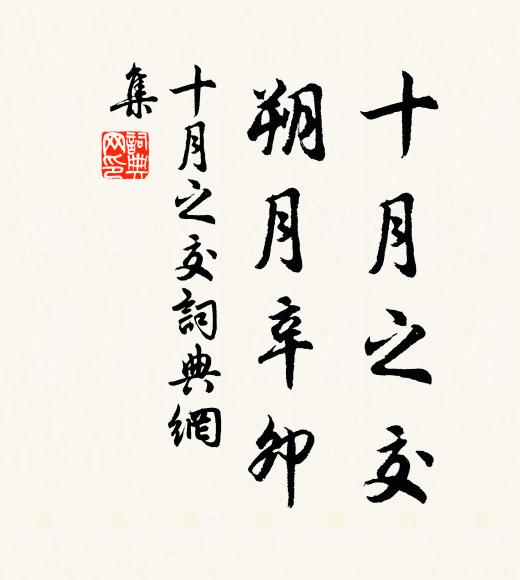 十月之交
朔月辛卯
十月之交詞典網
集
詞典
网印